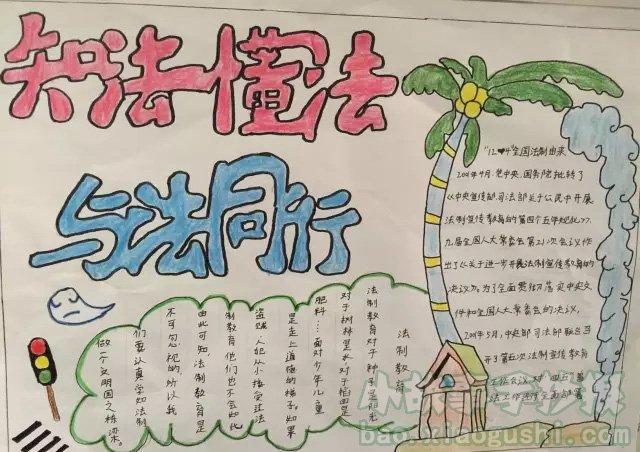 知法懂法
与法同行
"12.4"全国法制由来
2001年4月,党中央、国务院批转了
《中央宣传部、司法部关于公民中开展
法制宣传教育的第四个五年规划》,
九届全国人大常委会第21次会议作
出了《关于进一步开展法制宣传教育的
决议》。为了全面贯彻落实中央文
件和全国人大常委会的决议,
2001年5月,中央部司法部联合召
开了第五次法制宣传教育
工作会议,对"四五"普
法工作进行全面部署
法制教育
法制教育对于种子是阳光
对于树林是水对于怕田是
肥料…面对少年儿童
是走上道德的梯子。如果
盗贼人犯从小接受法
制教育他们也不会如此
由此可知法制教育是
不可忽视的,所以我
们要认真学知法制
做一个文明国之栋梁。
小故事手抄报
bao.xiaogushi.com